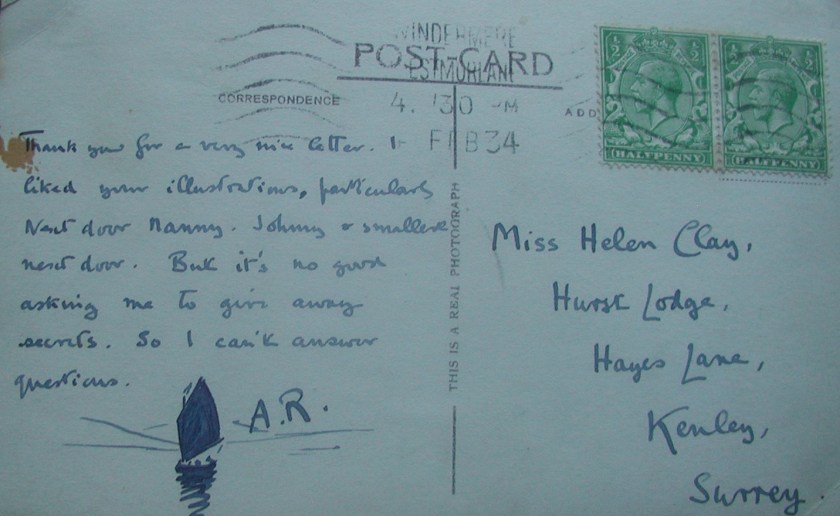 WINDERMERE
WESTMORLAND
4. 30 PM
FEB 34
POST-CARD
CORRESPONDENCE
ADD
½ ½
HALFPENNY
½ ½
HALFPENNY
Thank you for a very nice letter. I
liked your illustrations, particularly
Next door Nanny. Johnny & smallest
next door. But it's no good
asking me to give away
secrets. So I can't answer
questions.
A.R.
THIS IS A REAL PHOTOGRAPH
Miss Helen Clay,
Hurst Lodge,
Hayes Lane,
Kenley,
Surrey.